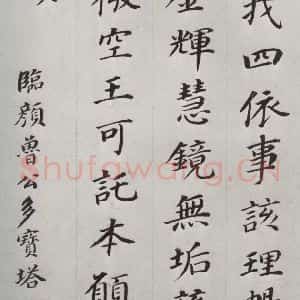 我四依事該理
輝慧鏡無垢
微空王可託本願
臨顏魯公多寶塔
Shufawang.CN